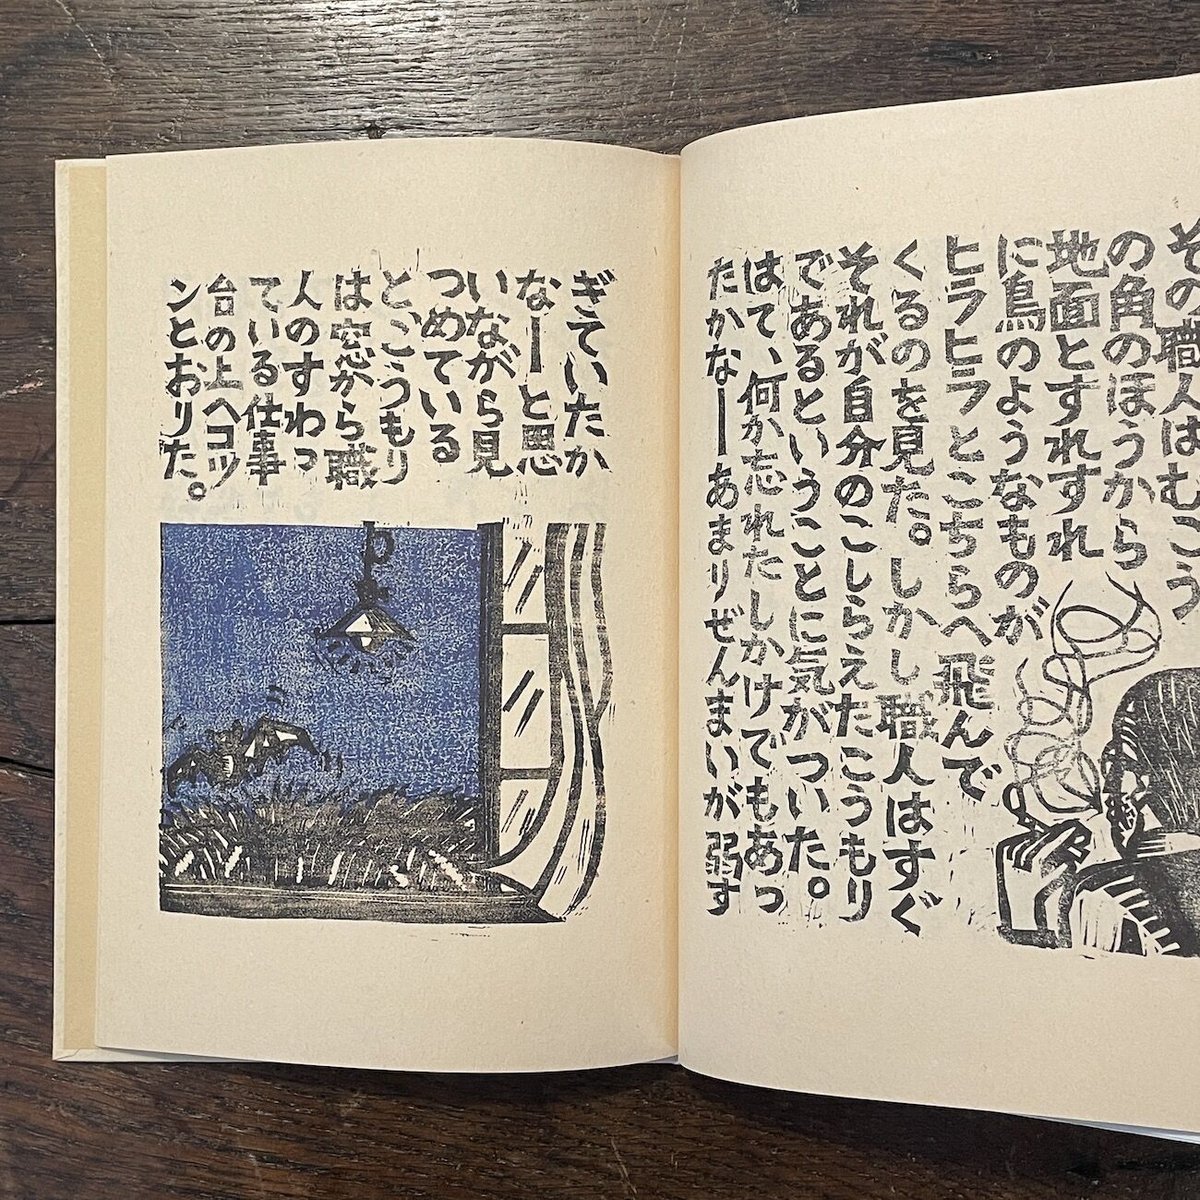 その職人はむこう
の角のほうから
地面とすれすれ
に鳥のようなものが
ヒラヒラとこちらへ飛んで
くるのを見た。しかし職人はすぐ
それが自分のこしらえたこうもり
であるということに気がついた。
はて、何か忘れたしかけでもあっ
たかなーあまりぜんまいが弱す
ぎていたか
なーと思
いながら見
つめている
と、こうもり
は窓から職
人のすわっ
ている仕事
台の上へコツ
ンとおりた。